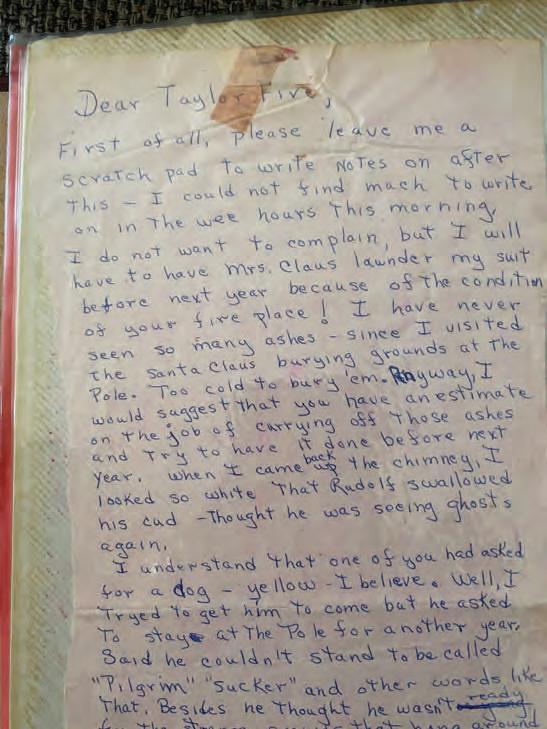 Dear Taylor Five,
First of all, please leave me a
scratch pad to write notes on after
this - I could not find mach to write
on in the wee hours this morning.
I do not want to complain, but I will
have to have Mrs. Claus launder my suit
before next year because of the condition
of your fire place! I have never
seen so many ashes - since I visited
the Santa Claus burying grounds at the
Pole. Too cold to bury 'em. Anyway, I
would suggest that you have an estimate
on the job of carrying off those ashes
and try to have it done before next
year. When I came back up the chimney, I
looked so white that Rudolf swallowed
his cud - Thought he was seeing ghosts
again.
I understand that one of you had asked
for a dog - yellow - I believe. Well, I
Tryed to get him to come but he asked
To stay at the Pole for another year.
Said he couldn't stand to be called
"Pilgrim" "Sucker" and other words like
that. Besides he thought he wasn't ready
for the that hang around